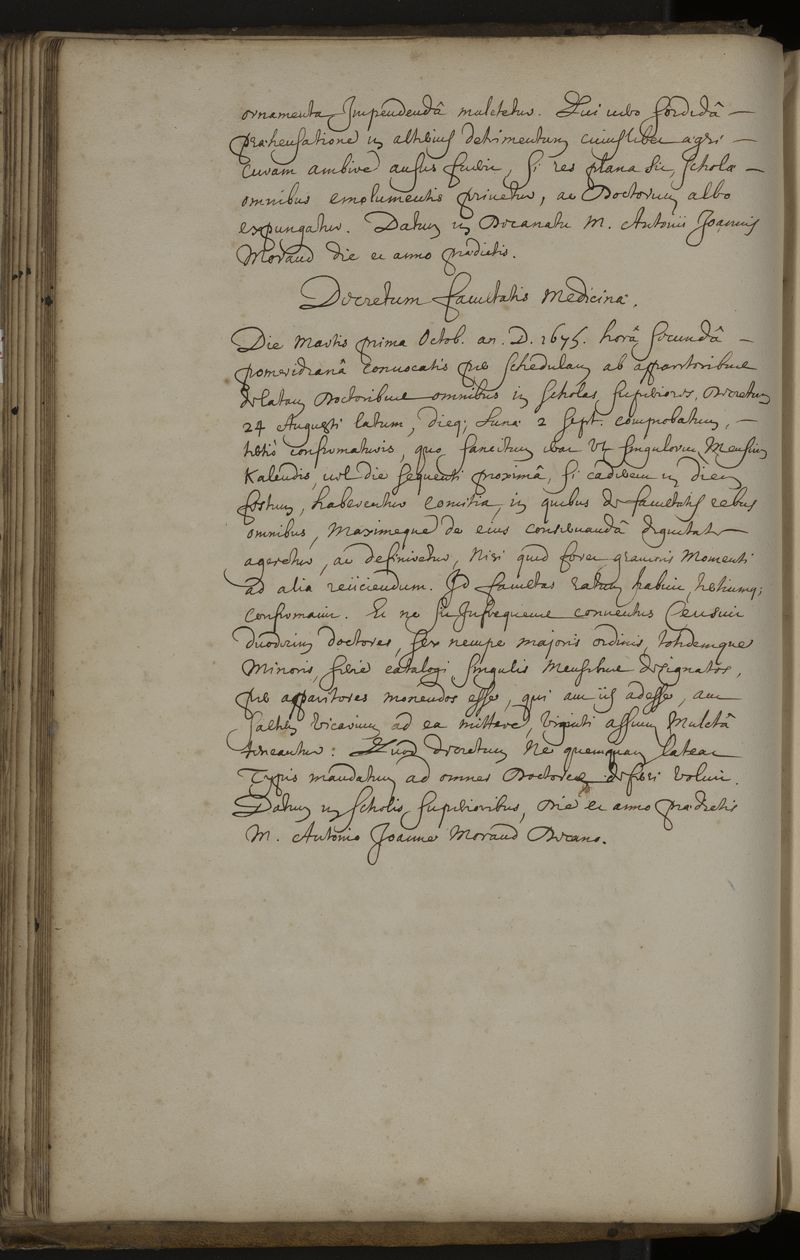 ornamenta Impendendâ mulctetur. Qui vero sordidâ —
præhensatione in alterius detrimentum cuiuslibet ægri —
Curam ambire ausus fuerit, si res plana sit, scholæ —
omnibus emolumentis privetur, ac Doctorum albo
expungatur. Datum in Decanatu M. Antonii Joannis
Morand die et anno prædictis.
Decretum facultatis Medicinæ.
Die Martis prima Octob. an. D. 1675. horâ secundâ —
pomeridianâ convocatis per schedulam ab apparitoribus
delatam Doctoribus omnibus in scholas superiores, Decretum
24 Augusti latum, dieq; Lunæ 2 sept. comprobatum, —
tertiò confirmaturis, quo sancitum erat Vt singulorum Mensium
Kalendis, vel die sequenti proximâ, si caderent in diem
festum, haberentur Comitia, in quibus de facultatis rebus
omnibus, Maximeque de eius conservandâ dignitate —
ageretur, ac definiretur, Nisi quid foret gravioris Momenti
ad alia reiiciendum. Id facultas ratum habuit, tertiumq;
Confirmavit. Et ne sit Infrequens conventus Censuit
duodecim doctores, sex nempe majoris ordinis, totidemque
Minoris, serie catalogi singulis Mensibus designatos,
per apparitores monendos esse, qui aut iis adesse, aut
saltem vicarium ad ea mittere, viginti assium Mulctâ
teneantur. Quod decretum Ne quemquam lateat
Typis mandatum ad omnes Doctores deferri voluit.
Datum in scholis superioribus, Die et anno prædictis
M. Antonio Joanne Morand Decano.